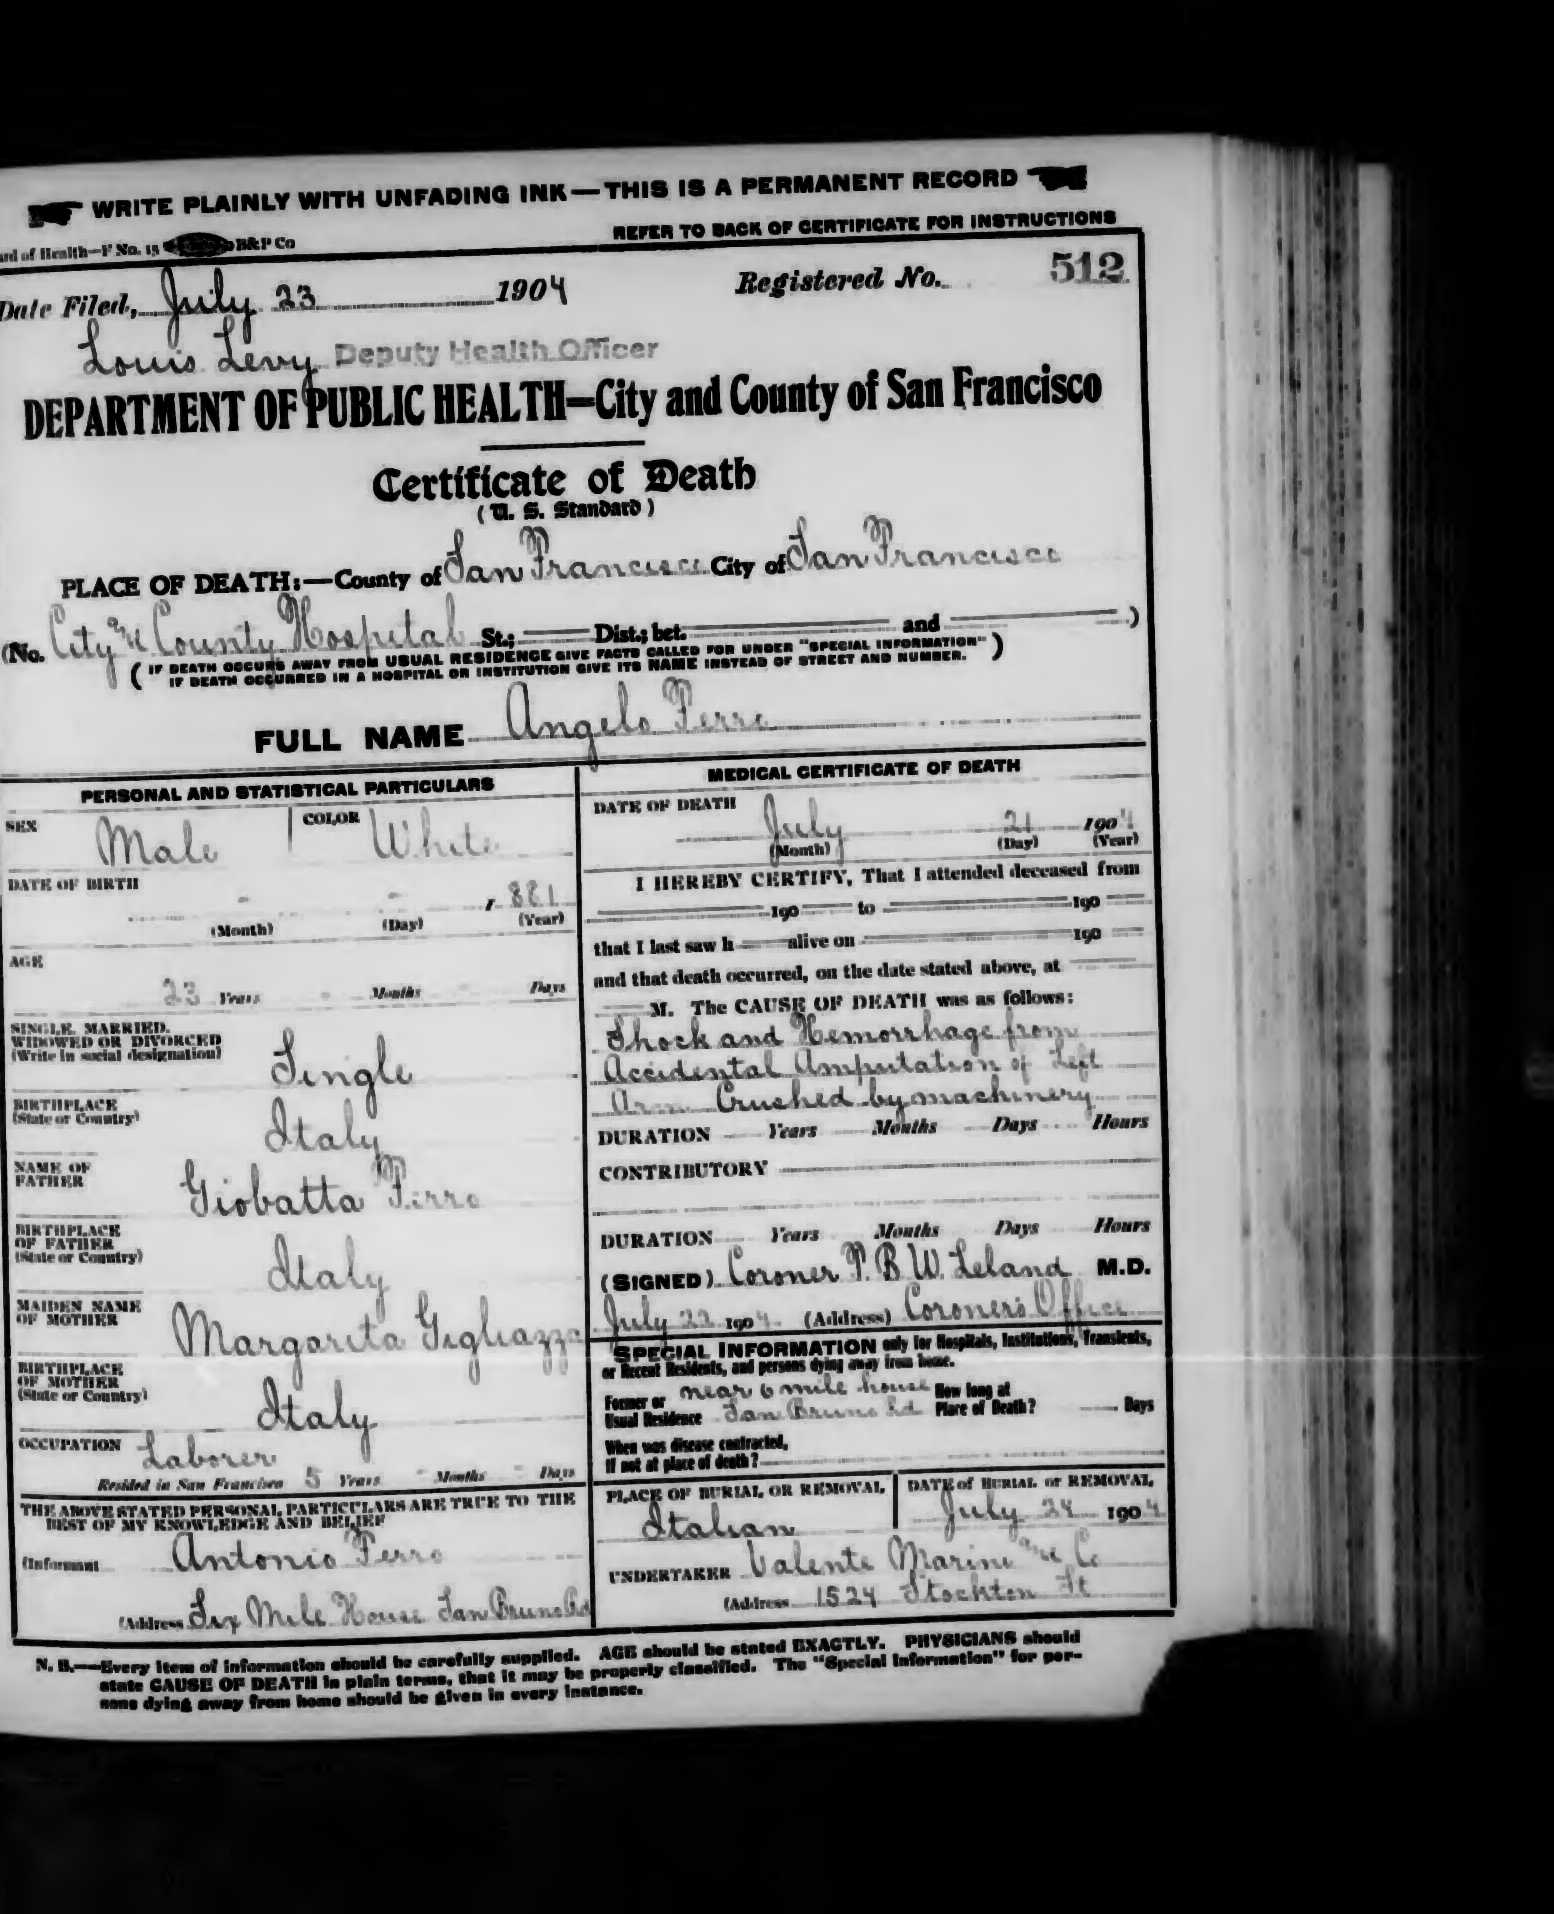 WRITE PLAINLY WITH UNFADING INK—THIS IS A PERMANENT RECORD
REFER TO BACK OF CERTIFICATE FOR INSTRUCTIONS
ard of Health—F No. 15 B&P Co
Date Filed, July 23 1904 Registered No. 512
Louis Levy Deputy Health Officer
DEPARTMENT OF PUBLIC HEALTH=City and County of San Francisco
Certificate of Death
(U. S. Standard)
PLACE OF DEATH:—County of San Francisco City of San Francisco
(No. City and County Hospital St.; Dist.; bet. and )
( IF DEATH OCCURS AWAY FROM USUAL RESIDENCE GIVE FACTS CALLED FOR UNDER "SPECIAL INFORMATION" )
IF DEATH OCCURRED IN A HOSPITAL OR INSTITUTION GIVE ITS NAME INSTEAD OF STREET AND NUMBER.
FULL NAME Angelo Ferro
PERSONAL AND STATISTICAL PARTICULARS
SEX Male COLOR White
DATE OF BIRTH
- - 1 881
(Month) (Day) (Year)
AGE
23 Years - Months Days
SINGLE, MARRIED,
WIDOWED OR DIVORCED
(Write in social designation) Single
BIRTHPLACE
(State or Country) Italy
NAME OF
FATHER Giobatta Ferro
BIRTHPLACE
OF FATHER
(State or Country) Italy
MAIDEN NAME
OF MOTHER Margarita Gigliazza
BIRTHPLACE
OF MOTHER
(State or Country) Italy
OCCUPATION Laborer
Resided in San Francisco 5 Years - Months - Days
THE ABOVE STATED PERSONAL PARTICULARS ARE TRUE TO THE
BEST OF MY KNOWLEDGE AND BELIEF
(Informant Antonio Ferro
(Address Six Mile House San Bruno Rd
MEDICAL CERTIFICATE OF DEATH
DATE OF DEATH
July 21 1904
(Month) (Day) (Year)
I HEREBY CERTIFY, That I attended deceased from
190 to 190
that I last saw h alive on 190
and that death occurred, on the date stated above, at
M. The CAUSE OF DEATH was as follows:
Shock and Hemorrhage from
Accidental Amputation of Left
Arm Crushed by machinery
DURATION Years Months Days Hours
CONTRIBUTORY
DURATION Years Months Days Hours
(SIGNED) Coroner T. B W. Leland M.D.
July 22 1904 (Address) Coroner's Office
SPECIAL INFORMATION only for Hospitals, Institutions, Transients,
or Recent Residents, and persons dying away from home.
Former or near 6 mile house How long at
Usual Residence San Bruno Rd Place of Death? Days
When was disease contracted,
If not at place of death?
PLACE OF BURIAL OR REMOVAL DATE of BURIAL or REMOVAL
Italian July 24 1904
UNDERTAKER Valente Marini and Co
(Address 1524 Stockton St
N. B.—Every item of information should be carefully supplied. AGE should be stated EXACTLY. PHYSICIANS should
state CAUSE OF DEATH in plain terms, that it may be properly classified. The "Special Information" for per-
sons dying away from home should be given in every instance.